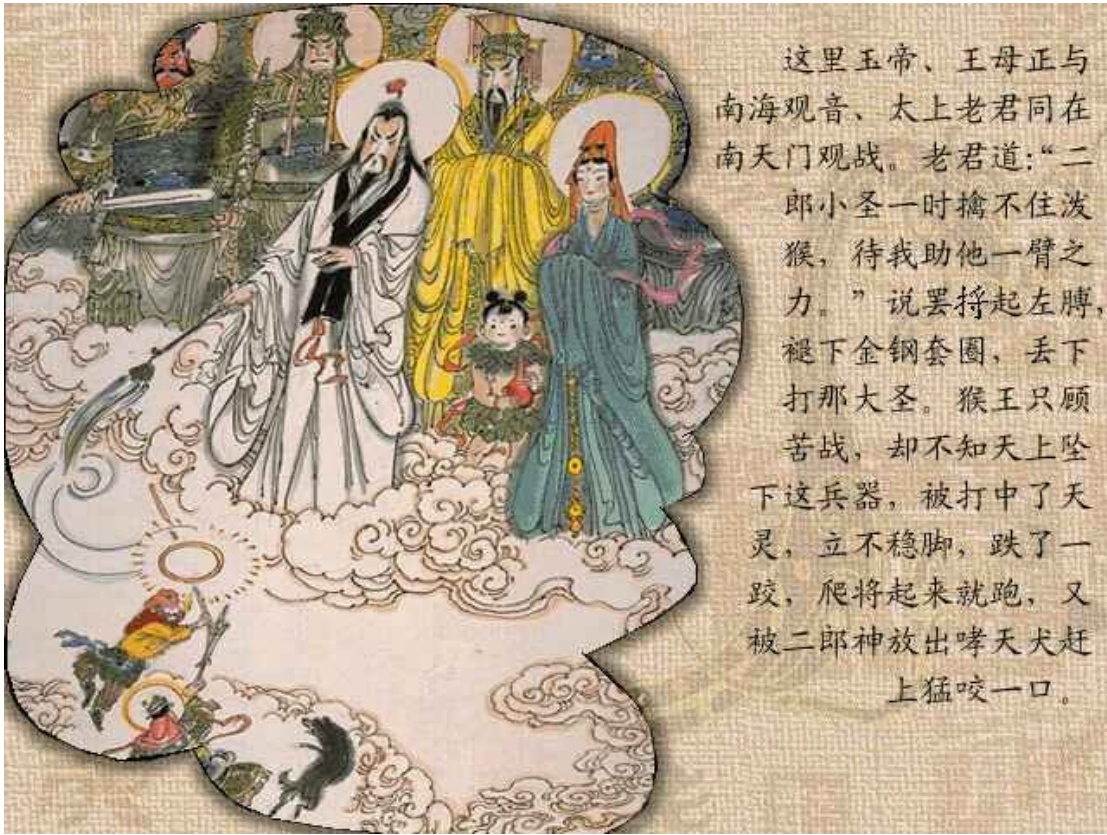 这里玉帝、王母正与
南海观音、太上老君同在
南天门观战。老君道:“二
郎小圣一时擒不住泼
猴,待我助他一臂之
力。”说罢捋起左膊,
褪下金钢套圈,丢下
打那大圣。猴王只顾
苦战,却不知天上坠
下这兵器,被打中了天
灵,立不稳脚,跌了一
跤,爬将起来就跑,又
被二郎神放出哮天犬赶
上猛咬一口。